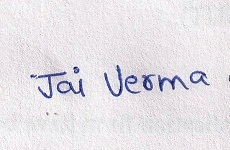 Jai Verma